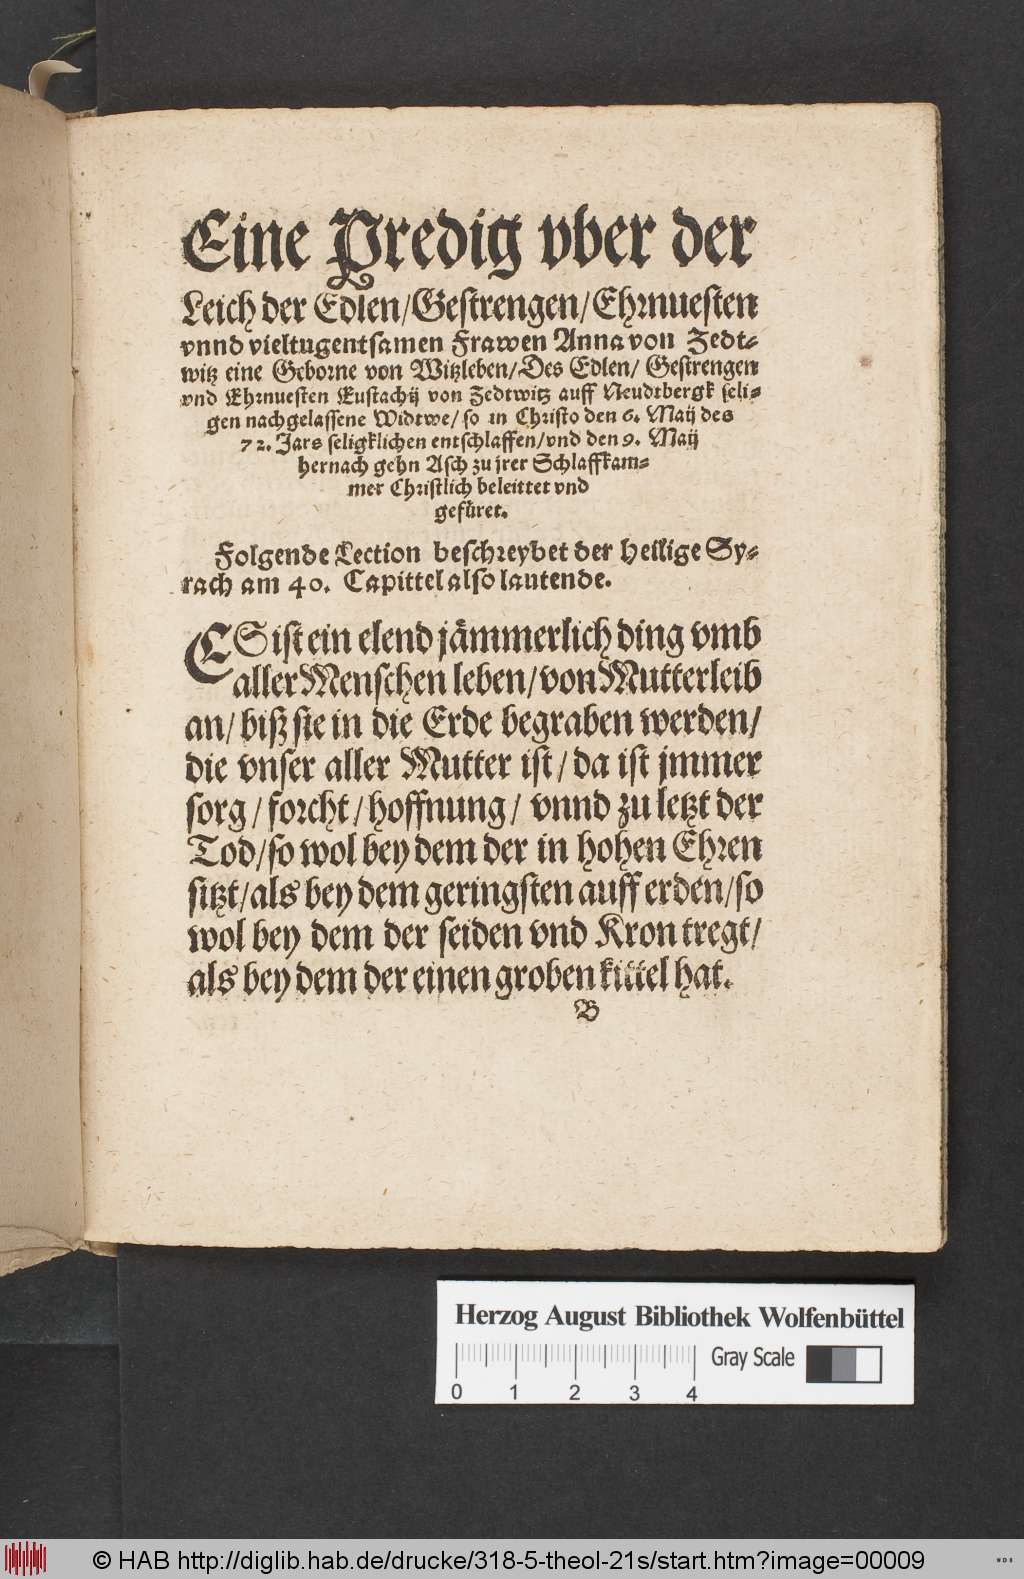 Eine Predig vber der
Leich der Edlen/Gestrengen/Ehrnuesten
vnnd vieltugentsamen Frawen Anna von Zedt-
witz eine Geborne von Witzleben/Des Edlen/ Gestrengen
vnd Ehrnuesten Eustachij von Zedtwitz auff Neudtbergk seli-
gen nachgelassene Widtwe/ so in Christo den 6. Maij des
72. Jars seligklichen entschlaffen/vnd den 9. Maij
hernach gehn Asch zu jrer Schlaffkam-
mer Christlich beleittet vnd
gefüret.
Folgende Lection beschreybet der heilige Sy-
rach am 40. Capittel also lautende.
ES ist ein elend jämmerlich ding vmb
aller Menschen leben/von Mutterleib
an/ biß sie in die Erde begraben werden/
die vnser aller Mutter ist/ da ist jmmer
sorg/ forcht/ hoffnung/ vnnd zu letzt der
Tod/so wol bey dem der in hohen Ehren
sitzt/als bey dem geringsten auff erden/so
wol bey dem der seiden vnd Kron tregt/
als bey dem der einen groben kittel hat.
B
Herzog August Bibliothek Wolfenbüttel
Gray Scale
0 1 2 3 4
© HAB http://diglib.hab.de/drucke/318-5-theol-21s/start.htm?image=00009